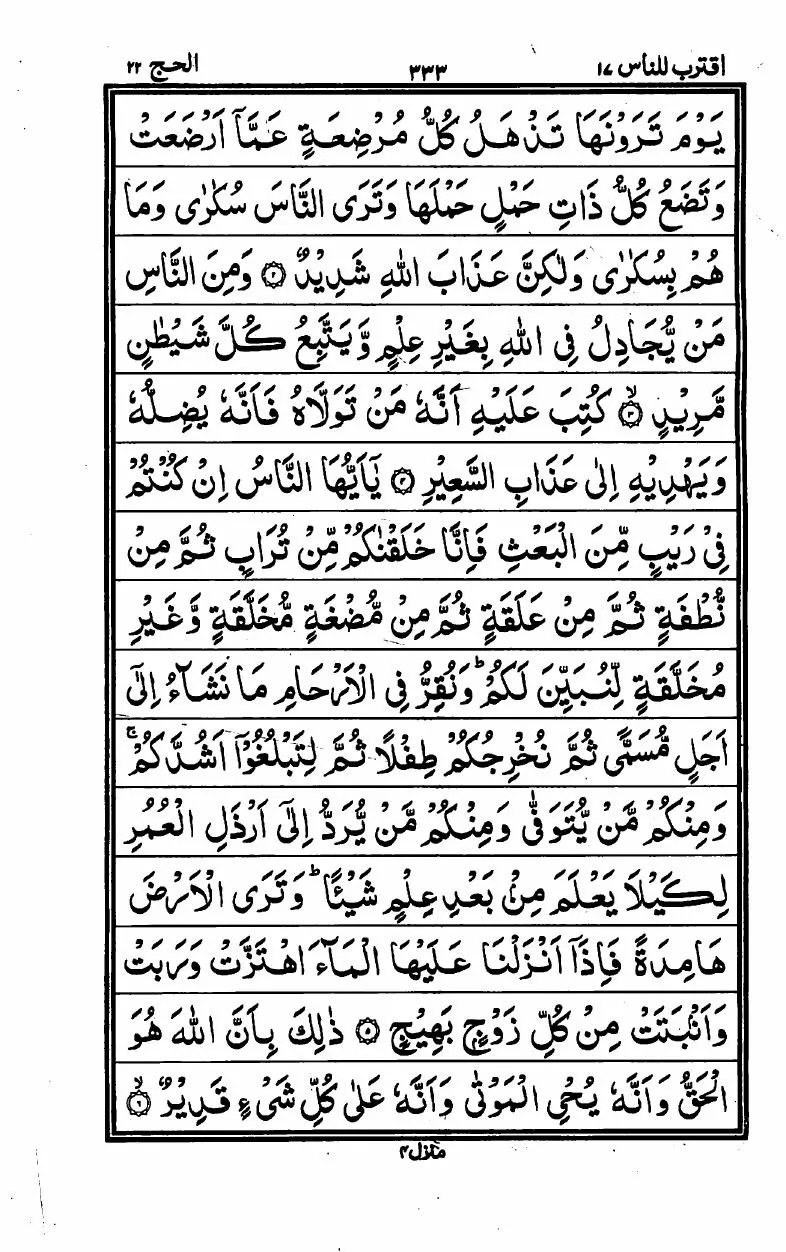 اقترب للناس ١٧
٣٣٣
الحج ٢٢
يَوْمَ تَرَوْنَهَا تَذْهَلُ كُلُّ مُرْضِعَةٍ عَمَّآ اَرْضَعَتْ
وَتَضَعُ كُلُّ ذَاتِ حَمْلٍ حَمْلَهَا وَتَرَى النَّاسَ سُكٰرٰى وَمَا
هُمْ بِسُكٰرٰى وَلٰكِنَّ عَذَابَ اللّٰهِ شَدِيْدٌ ۝٢ وَمِنَ النَّاسِ
مَنْ يُّجَادِلُ فِى اللّٰهِ بِغَيْرِ عِلْمٍ وَّيَتَّبِعُ كُلَّ شَيْطٰنٍ
مَّرِيْدٍ ۝٣ۙ كُتِبَ عَلَيْهِ اَنَّهٗ مَنْ تَوَلَّاهُ فَاَنَّهٗ يُضِلُّهٗ
وَيَهْدِيْهِ اِلٰى عَذَابِ السَّعِيْرِ ۝٤ يٰٓاَيُّهَا النَّاسُ اِنْ كُنْتُمْ
فِيْ رَيْبٍ مِّنَ الْبَعْثِ فَاِنَّا خَلَقْنٰكُمْ مِّنْ تُرَابٍ ثُمَّ مِنْ
نُّطْفَةٍ ثُمَّ مِنْ عَلَقَةٍ ثُمَّ مِنْ مُّضْغَةٍ مُّخَلَّقَةٍ وَّغَيْرِ
مُخَلَّقَةٍ لِّنُبَيِّنَ لَكُمْ ؕ وَنُقِرُّ فِى الْاَرْحَامِ مَا نَشَآءُ اِلٰٓى
اَجَلٍ مُّسَمًّى ثُمَّ نُخْرِجُكُمْ طِفْلًا ثُمَّ لِتَبْلُغُوْٓا اَشُدَّكُمْ ۚ
وَمِنْكُمْ مَّنْ يُّتَوَفّٰى وَمِنْكُمْ مَّنْ يُّرَدُّ اِلٰٓى اَرْذَلِ الْعُمُرِ
لِكَيْلَا يَعْلَمَ مِنْۢ بَعْدِ عِلْمٍ شَيْـًٔا ؕ وَتَرَى الْاَرْضَ
هَامِدَةً فَاِذَآ اَنْزَلْنَا عَلَيْهَا الْمَآءَ اهْتَزَّتْ وَرَبَتْ
وَاَنْۢبَتَتْ مِنْ كُلِّ زَوْجٍۢ بَهِيْجٍ ۝٥ ذٰلِكَ بِاَنَّ اللّٰهَ هُوَ
الْحَقُّ وَاَنَّهٗ يُحْيِ الْمَوْتٰى وَاَنَّهٗ عَلٰى كُلِّ شَيْءٍ قَدِيْرٌ ۝٦ۙ
منزل٤